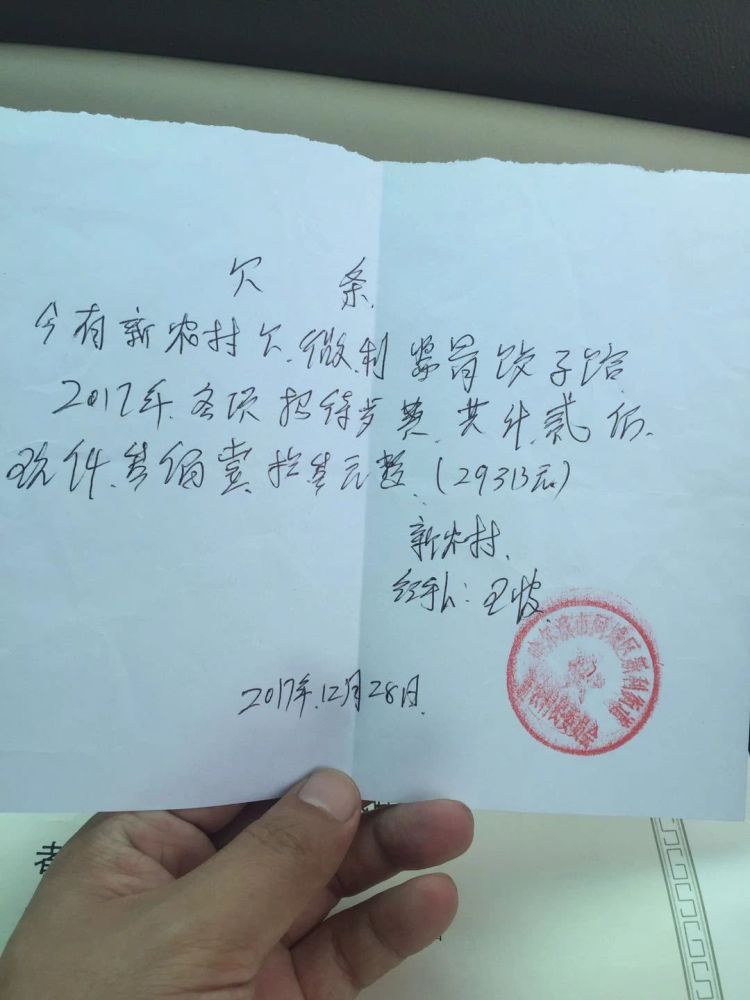 欠 条
今有新农村欠.微利蒙哥饺子馆
2017年.各项招待等费.共计.贰万.
玖仟.叁佰壹拾叁元整.(29313元)
新农村.
经手人:王波
哈尔滨市阿城区新利街道
村民委员会
2017年.12月28日.
者